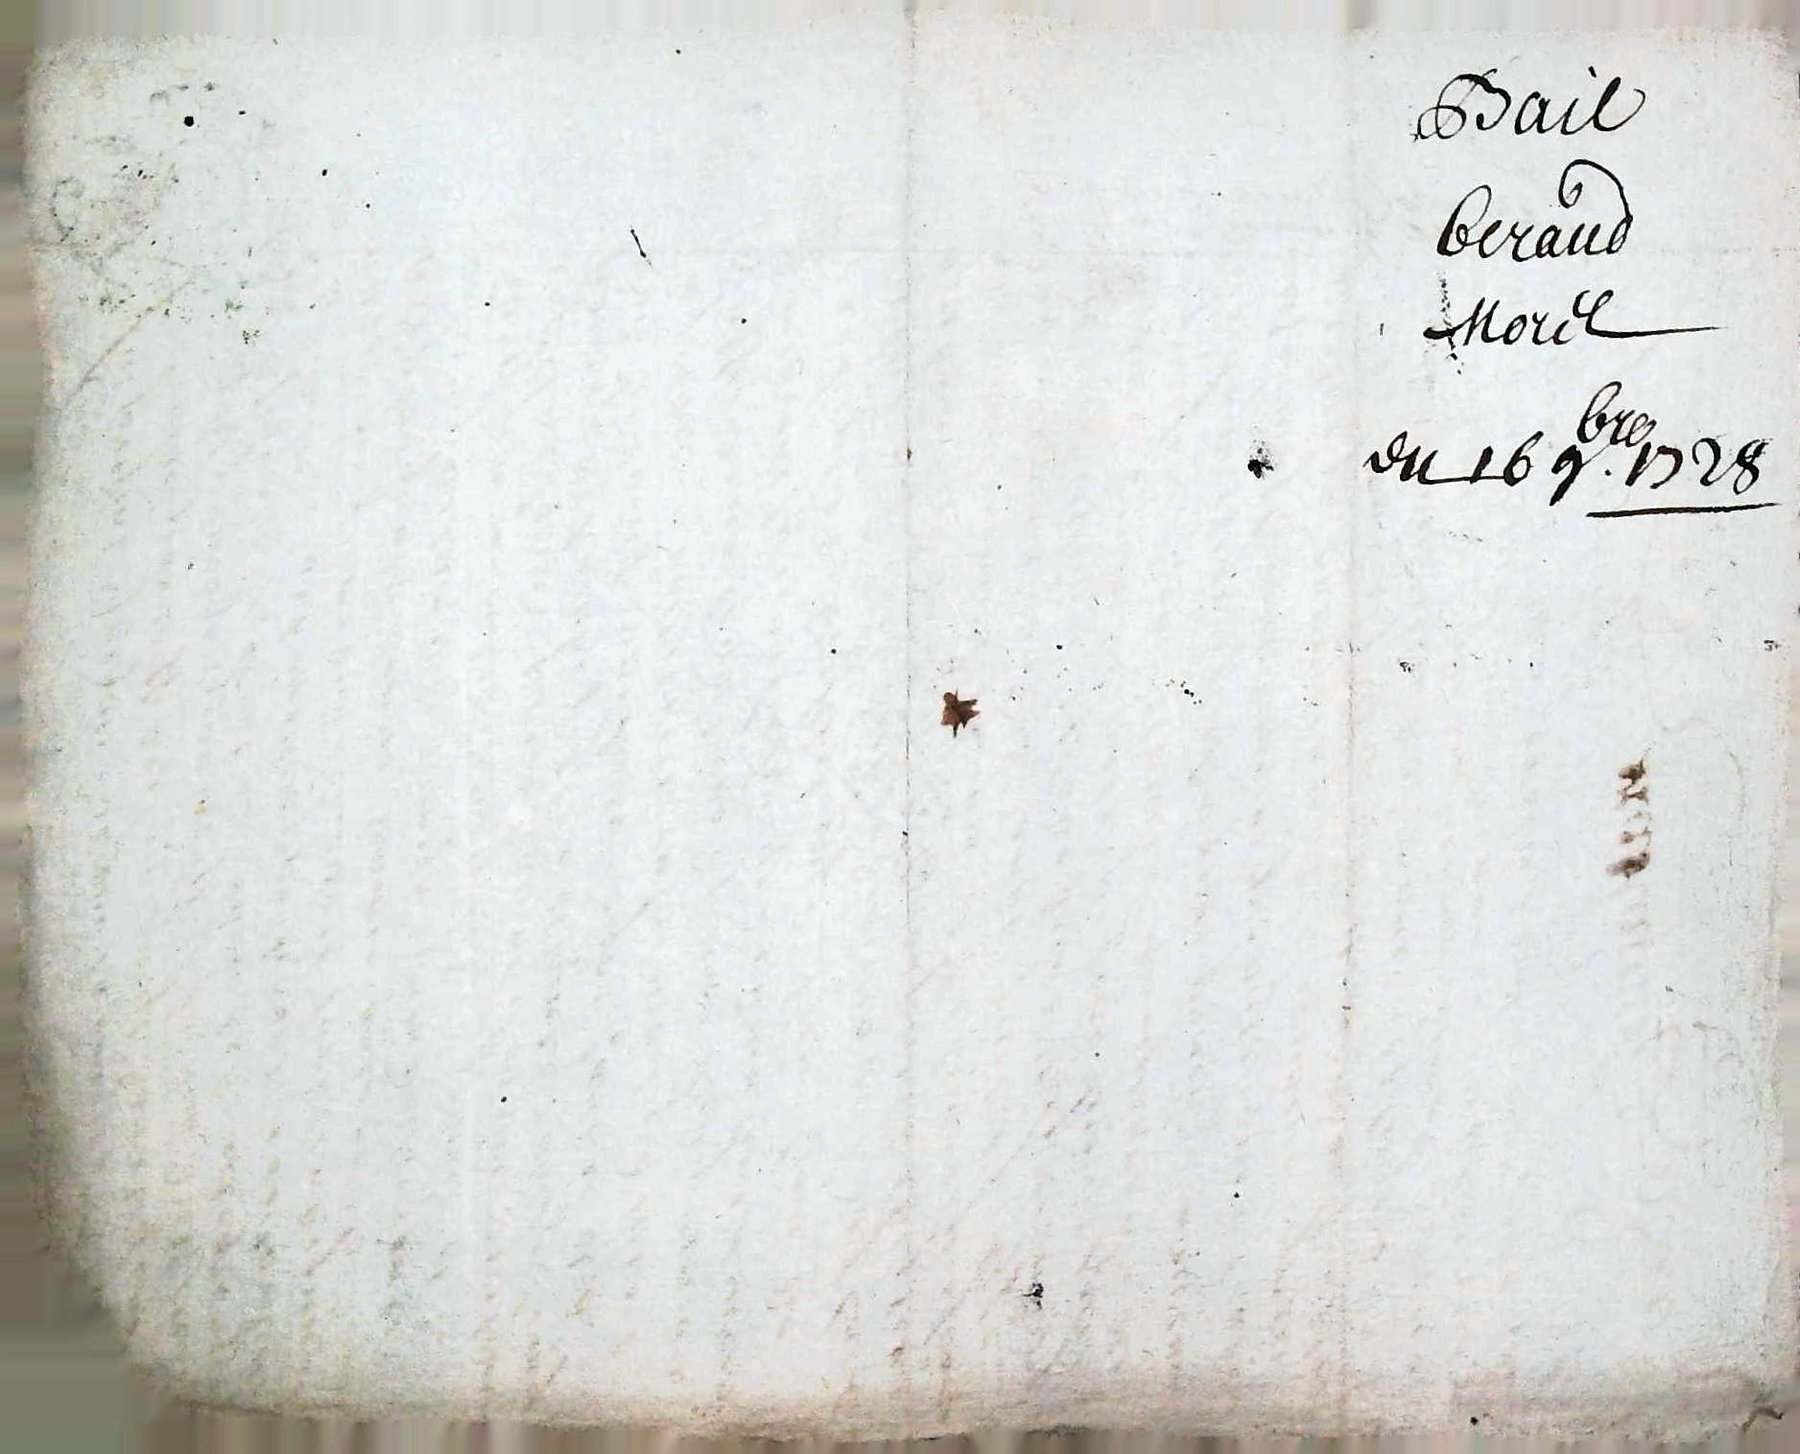 Bail
beraud
Morel
du 16 9.bre 1728